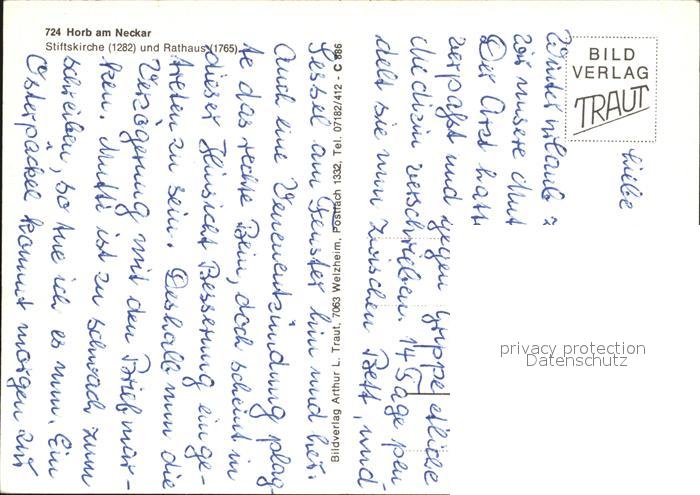 724 Horb am Neckar
Stiftskirche (1282) und Rathaus (1765)
BILD
VERLAG
TRAUT
Bildverlag Arthur L. Traut, 7063 Welzheim, Postfach 1332, Tel. 07182/412 - C 886
Liebe
Winterurlaub
wir unsere Mut
Der Arzt hatt
verpaßt und gegen Grippe etliche
Medizin verschrieben. 14 Tage pen-
delt sie nun zwischen Bett, und
Sessel am Fenster hin und her.
Auch eine Venenentzündung plag-
te das rechte Bein, doch scheint in
dieser Hinsicht Besserung einge-
treten zu sein. Deshalb nun die
Verzögerung mit den Briefmar-
ken. Mutti ist zu schwach zum
schreiben, so tue ich es nun. Ein
Osterpäckel kommt morgen zur
privacy protection
Datenschutz